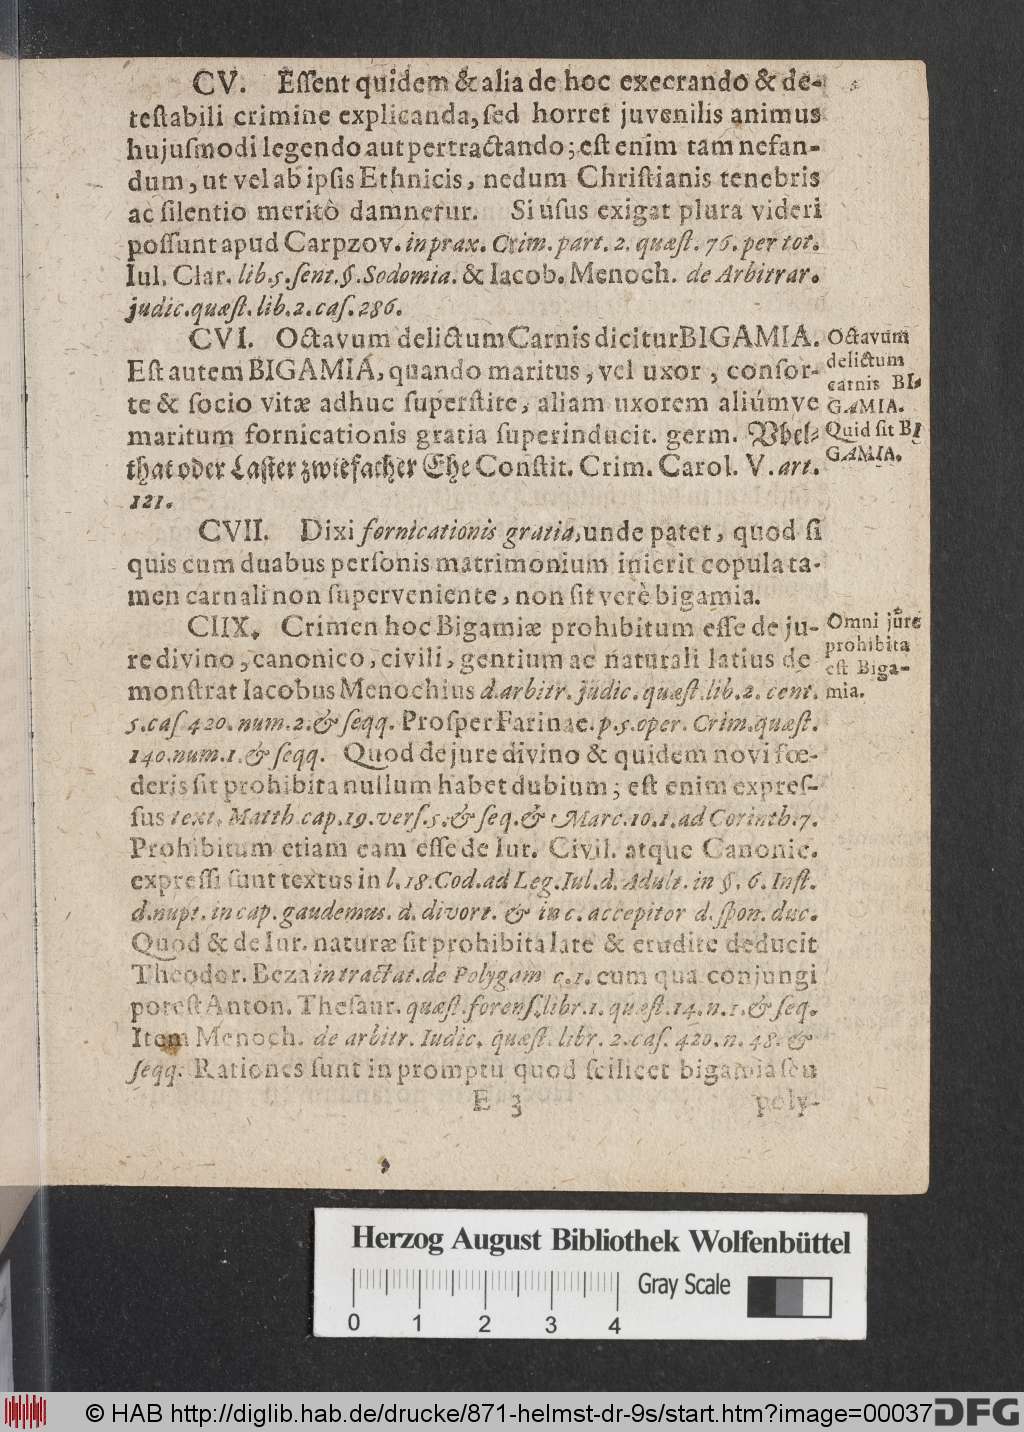 CV. Eſſent quidem & alia de hoc execrando & de-
teſtabili crimine explicanda, ſed horret juvenilis animus
hujuſmodi legendo aut pertractando; eſt enim tam nefan-
dum, ut vel ab ipſis Ethnicis, nedum Chriſtianis tenebris
ac ſilentio meritò damnetur. Si uſus exigat plura videri
poſſunt apud Carpzov. in prax. Crim. part. 2. quæſt. 76. per tot.
Iul. Clar. lib. 5. ſent. §. Sodomia. & Iacob. Menoch. de Arbitrar.
judic. quæſt. lib. 2. caſ. 286.
CVI. Octavum delictum Carnis dicitur BIGAMIA.
Eſt autem BIGAMIA, quando maritus, vel uxor, conſor-
te & ſocio vitæ adhuc ſuperſtite, aliam uxorem aliúmve
maritum fornicationis gratia ſuperinducit. germ. Vbel-
that oder Laſter zwiefacher Ehe Conſtit. Crim. Carol. V. art.
121.
Octavum
delictum
carnis BI-
GAMIA.
Quid ſit BI
GAMIA.
CVII. Dixi fornicationis gratia, unde patet, quod ſi
quis cum duabus perſonis matrimonium inierit copula ta-
men carnali non ſuperveniente, non ſit verè bigamia.
CIIX. Crimen hoc Bigamiæ prohibitum eſſe de ju-
re divino, canonico, civili, gentium ac naturali latius de
monſtrat Iacobus Menochius d. arbitr. judic. quæſt. lib. 2. cent.
5. caſ. 420. num. 2. & ſeqq. Proſper Farinac. p. 5. oper. Crim. quæſt.
140. num. 1. & ſeqq. Quod de jure divino & quidem novi fœ-
deris ſit prohibita nullum habet dubium; eſt enim expreſ-
ſus text. Matth. cap. 19. verſ. 5. & ſeq. & Marc. 10. 1. ad Corinth. 7.
Prohibitum etiam eam eſſe de Iur. Civil. atque Canonic.
expreſſi ſunt textus in l. 18. Cod. ad Leg. Iul. d. Adult. in §. 6. Inſt.
d. nupt. in cap. gaudemus. d. divort. & in c. accepitor d. ſpon. duc.
Quod & de Iur. naturæ ſit prohibita late & erudite deducit
Theodor. Beza in tractat. de Polygam c. 1. cum qua conjungi
poteſt Anton. Theſaur. quæſt. forenſ. libr. 1. quæſt. 14. n. 1. & ſeq.
Item Menoch. de arbitr. Iudic. quæſt. libr. 2. caſ. 420. n. 48. &
ſeqq. Rationes ſunt in promptu quod ſcilicet bigamia ſeu
Omni jure
prohibita
eſt Biga-
mia.
E 3 poly-
Herzog August Bibliothek Wolfenbüttel
Gray Scale
0 1 2 3 4
© HAB http://diglib.hab.de/drucke/871-helmst-dr-9s/start.htm?image=00037
DFG